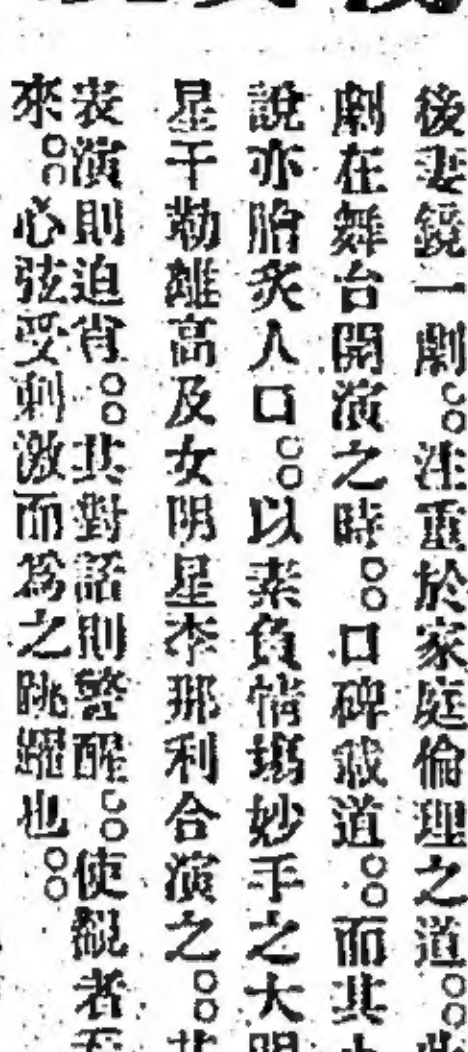 後妻鏡一劇。。注重於家庭倫理之道。。
劇在舞台開演之時。。口碑載道。。而其
說亦膾炙人口。。以素負情塲妙手之大明
星干勒雄高及女明星李那利合演之。。其
表演則迫肖。。其對話則警醒。。使觀者
來。。心弦受刺激而為之跳躍也。。